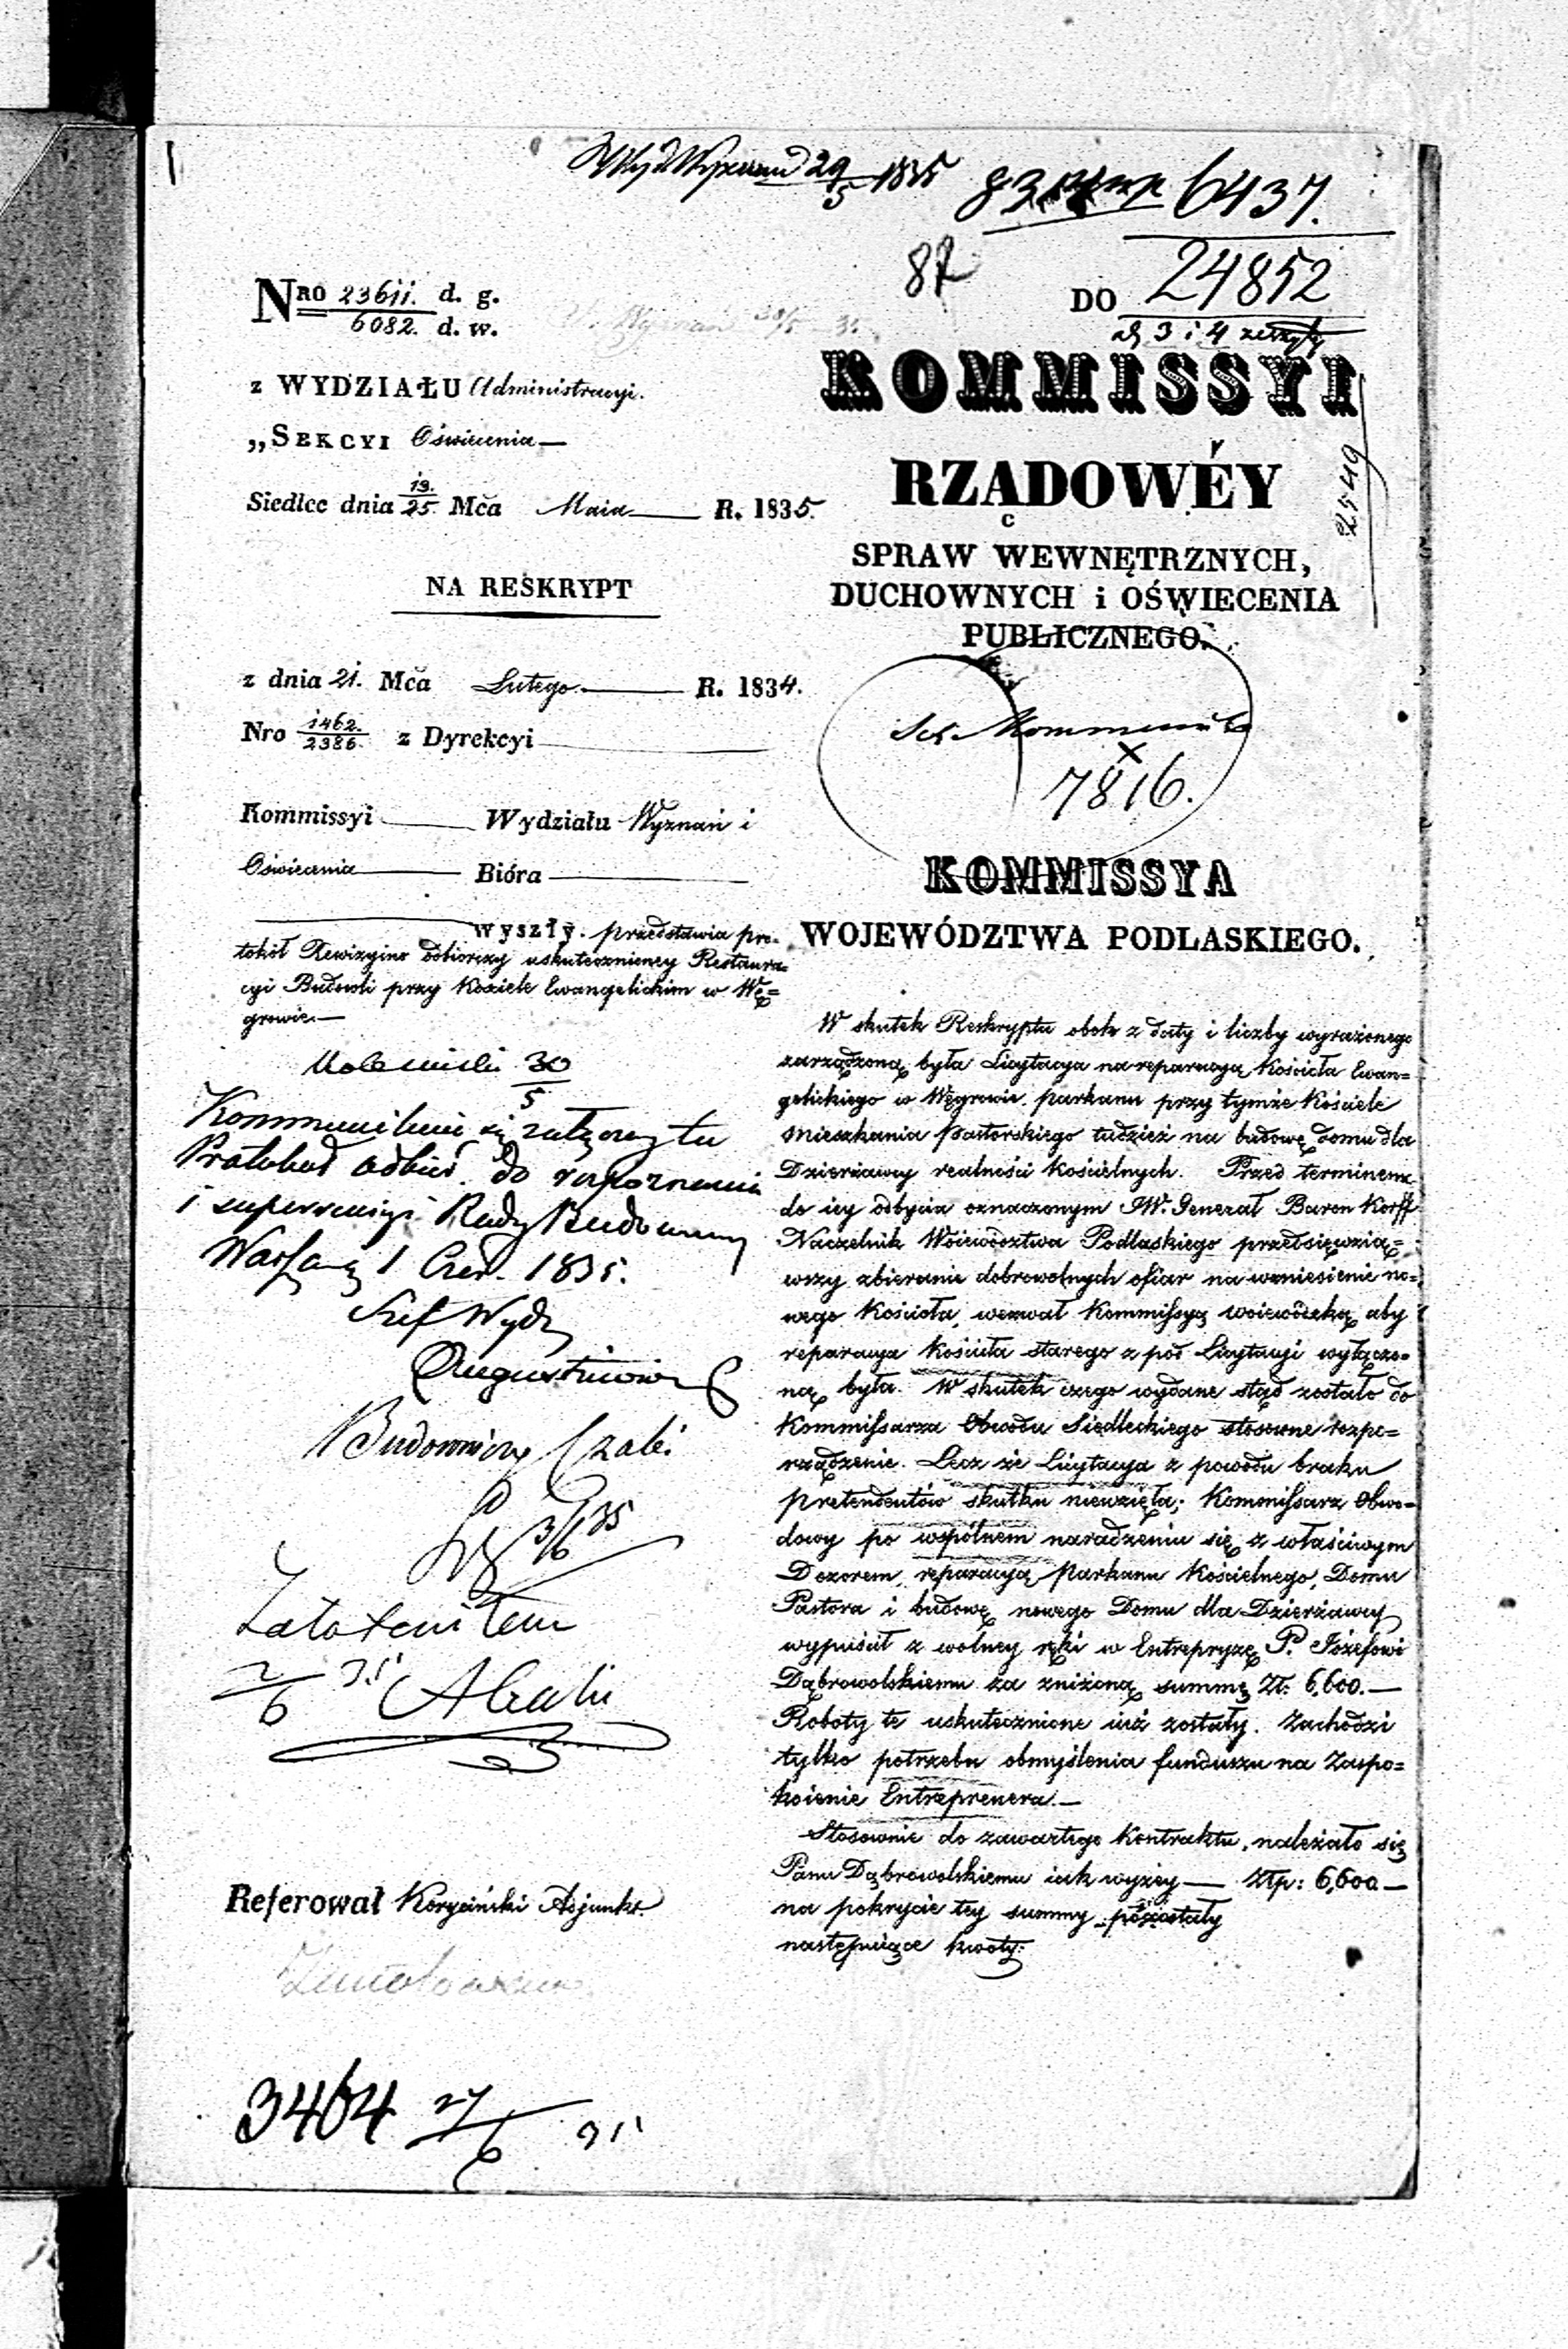 29/5 1835
6437.
87
NRO 23611. d. g.
6082. d. w.
DO 24852
3 i 4 zeszyty
z WYDZIAŁU Administracyi.
„SEKCYI Oświecenia—
Siedlec dnia 13./25. Mča Maia R. 1835.
NA RESKRYPT
z dnia 21. Mča Lutego R. 1834.
Nro 1462./2386. z Dyrekcyi
Kommissyi Wydziału Wyznań i
Oświecenia Bióra
wyszły. przedstawia pro-
tokół Rewizyino odbiorczy uskutecznioney Restaura-
cyi Budowli przy Kościele Ewangelickim w Wę=
growie.—
30/5
Kommunikuie się załączony tu
Protokoł odbior. do rozpoznania
i superrewizyi Rady Budowniczey
Warszawa 1 Czer. 1835.
Szef Wydz
Augustinowicz
Budowniczy
3/6 35
2/6 35
Referował Koryciński Adjunkt.
3464 27/6 35
KOMMISSYI
RZĄDOWÉY
SPRAW WEWNĘTRZNYCH,
DUCHOWNYCH i OŚWIECENIA
PUBLICZNEGO.
7816.
KOMMISSYA
WOJEWÓDZTWA PODLASKIEGO.
W skutek Reskryptu obok z daty i liczby wyrażonego
zarządzoną była Licytacya na reparacyą Kościoła Ewan=
gelickiego w Węgrowie. parkanu przy tymże Kościele
Mieszkania Pastorskiego tudzież na budowę domu dla
Dzierżawcy realności kościelnych. Przed terminem
do iey odbycia oznaczonym JW. Generał Baron Korff
Naczelnik Woiewództwa Podlaskiego przedsięwzią=
wszy zbieranie dobrowolnych ofiar na wzniesienie no=
wego Kościoła, wezwał Kommissyą woiewódzką aby
reparacya kościoła starego z pod Licytacyi wyłączo=
ną była. W skutek czego wydane stąd zostało do
Kommissarza Obwodu Siedleckiego stosowne rozpo=
rządzenie. Lecz że Licytacya z powodu braku
pretendentów skutku niewzięła; Kommissarz Obwo=
dowy po wspólnem naradzeniu się z właściwym
Dozorem, reparacyą parkanu Kościelnego, Domu
Pastora i budowę nowego Domu dla Dzierżawcy
wypuścił z wolney ręki w Entrepryzę P. Józefowi
Dąbrowolskiemu za zniżoną summę Zł: 6,600.—
Roboty te uskutecznione iuż zostały. Zachodzi
tylko potrzeba obmyślenia funduszu na Zaspo=
koienie Entreprenera.—
Stosownie do zawartego Kontraktu, należało się
Panu Dąbrowolskiemu iak wyżey— Złp: 6,600—
na pokrycie tey summy pozostały
następuiące kwoty: